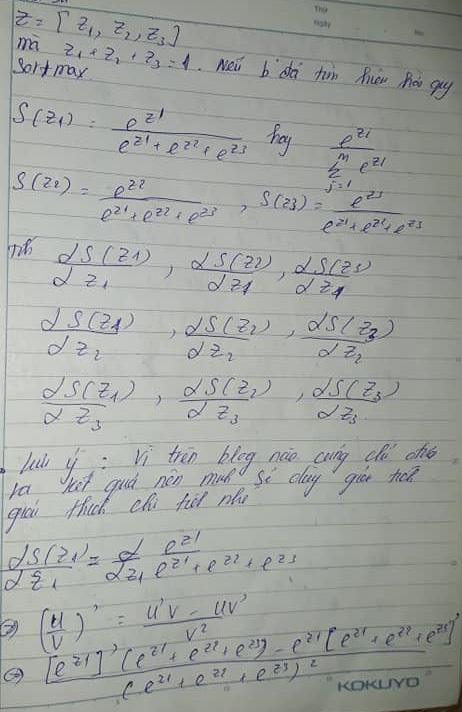 Thứ
Ngày
KOKUYO
Z = [ Z1, Z2, Z3]
mà Z1 + Z2 + Z3 = 1. Nếu b đã tìm hiểu hồi quy
softmax
S(Z1) = e^Z1 / (e^Z1 + e^Z2 + e^Z3) hay e^Z1 / Σ_{j=1}^{n} e^Z1
S(Z2) = e^Z2 / (e^Z1 + e^Z2 + e^Z3) , S(Z3) = e^Z3 / (e^Z1 + e^Z2 + e^Z3)
Tính ∂S(Z1)/∂Z1 , ∂S(Z2)/∂Z1 , ∂S(Z3)/∂Z1
∂S(Z1)/∂Z2 , ∂S(Z2)/∂Z2 , ∂S(Z3)/∂Z2
∂S(Z1)/∂Z3 , ∂S(Z2)/∂Z3 , ∂S(Z3)/∂Z3
Lưu ý : Vì trên blog nào cũng chỉ đưa
ra kết quả nên mình sẽ dùng giải tích
giải thích chi tiết nhé
∂S(Z1)/∂Z1 = ∂/∂Z1 e^Z1 / (e^Z1 + e^Z2 + e^Z3)
⇒ (u/v)' = (u'v - uv') / v^2
⇒ ([e^Z1]' (e^Z1 + e^Z2 + e^Z3) - e^Z1 [e^Z1 + e^Z2 + e^Z3]') / (e^Z1 + e^Z2 + e^Z3)^2
KOKUYO